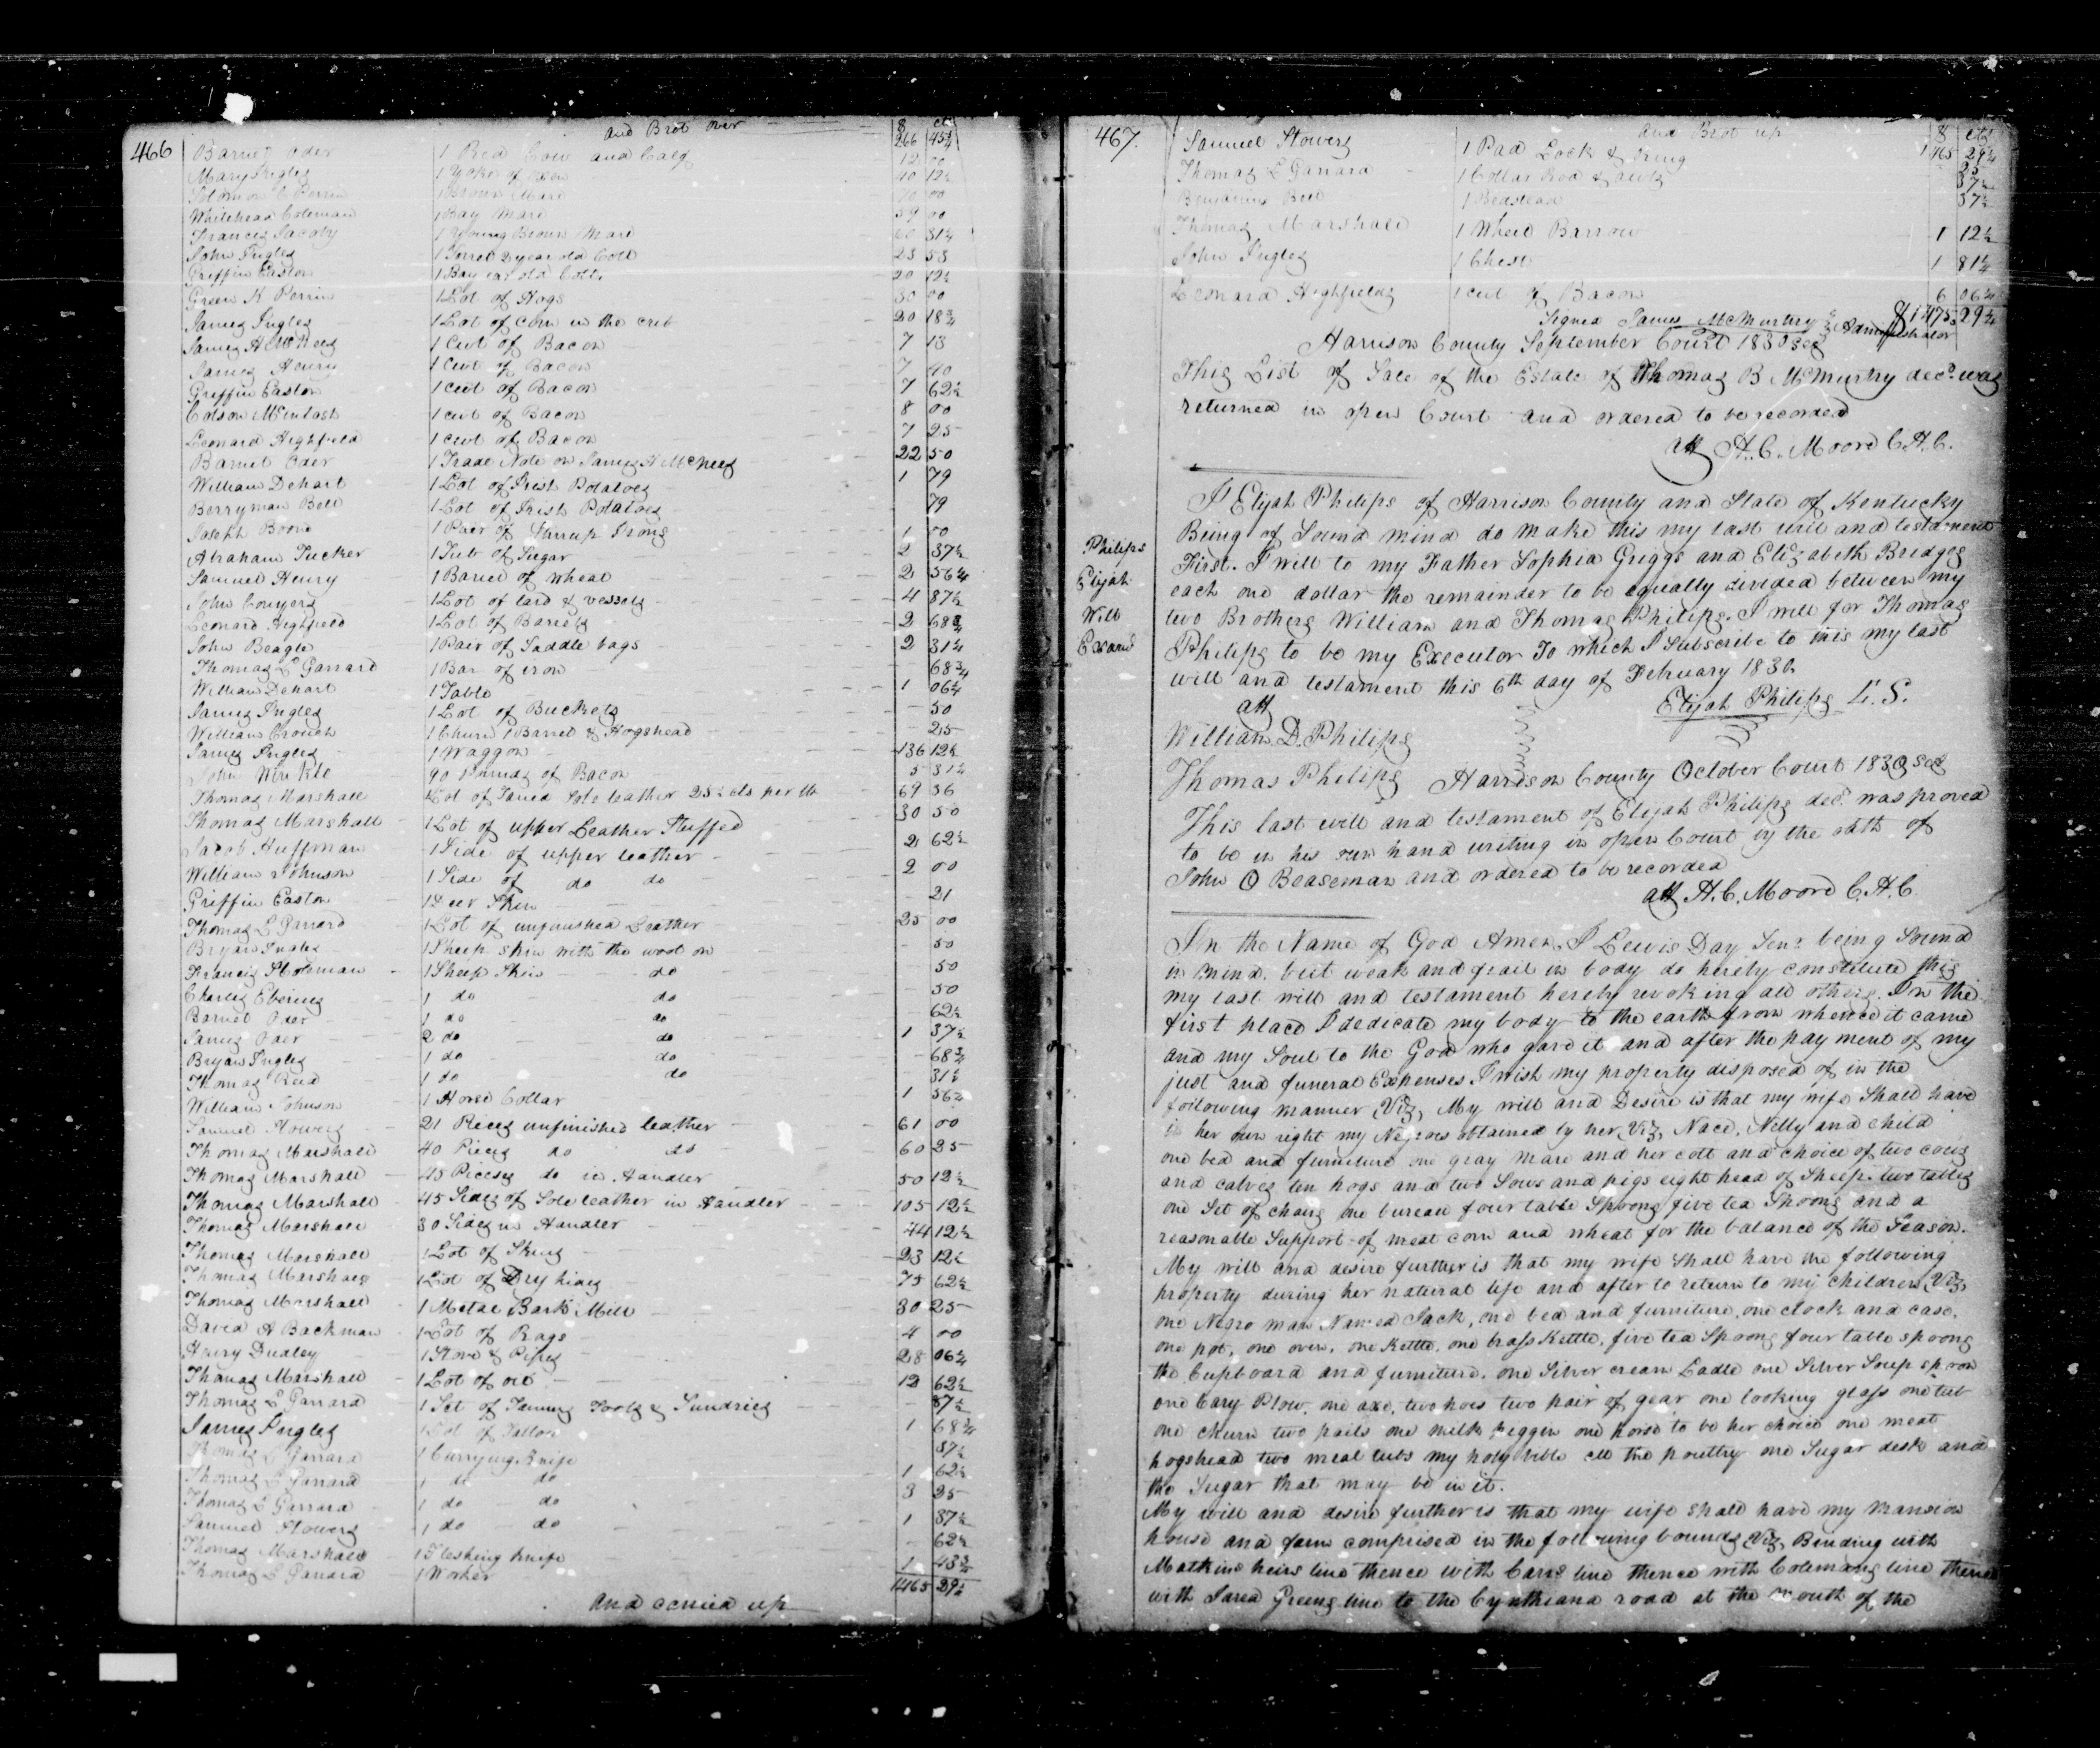 466
And Brot over $ cts
266 45¼
Barnet Oder 1 Red Cow and Calf 12 00
Mary Ingles 1 Yoke of oxen 40 12½
Solomon C Perrin 1 Brown Mare 10 00
Whitehead Coleman 1 Bay Mare 59 00
Francis Jacoby 1 Young Brown Mare 60 31¼
John Ingles 1 Sorrel 2 year old Colt 23 53
Griffin Easton 1 Bay year old Colt 20 12½
Green K Perrin 1 Lot of Hogs 30 00
James Ingles 1 Lot of corn in the crib 20 18¾
James H McNees 1 Cwt of Bacon 7 13
James Henry 1 Cwt of Bacon 7 40
Griffin Easton 1 cwt of Bacon 7 62½
Cotson McIntosh 1 cwt of Bacon 8 00
Leonard Highfield 1 cwt of Bacon 7 25
Barnet Oder 1 Trade Note on James H McNees 22 50
William Dehart 1 Lot of Irish Potatoes 1 79
Berryman Bell 1 Lot of Irish Potatoes 79
Joseph Boone 1 Pair of Stirrup Irons 1 00
Abraham Tucker 1 Tub of Sugar 2 37½
Samuel Henry 1 Barrel of wheat 2 56¼
John Conyers 1 Lot of lard & vessels 4 87½
Leonard Highfield 1 Lot of Barrels 2 68¾
John Beagle 1 Pair of Saddle bags 2 31¼
Thomas L Garrard 1 Bar of iron 68¾
William Dehart 1 Table 1 06¼
James Ingles 1 Lot of Buckets 50
William Crouch 1 Churn 1 Barrel & Hogshead 25
James Ingles 1 Waggon 136 12½
John Winkle 90 Pounds of Bacon 5 31¼
Thomas Marshall Lot of Tanned Sole leather 25½ cts per lb 69 36
Thomas Marshall 1 Lot of upper Leather Stuffed 30 50
Jacob Huffman 1 Side of upper leather 2 62½
William Johnson 1 Side of do do 2 00
Griffin Easton 1 Deer Skin 21
Thomas L Garrard 1 Lot of unfinished Leather 25 00
Bryan Ingles 1 Sheep skin with the wool on 50
Francis Coleman 1 Sheep Skin do 50
Charles Ebering 1 do do 50
Barnet Oder 1 do do 62½
James Oder 2 do do 1 37½
Bryan Ingles 1 do do 68¾
Thomas Reed 1 do do 31¼
William Johnson 1 Horse Collar 1 56¼
Samuel Stowers 21 Pieces unfinished leather 61 00
Thomas Marshall 40 Pieces do do 60 25
Thomas Marshall 45 Pieces do in Handler 50 12½
Thomas Marshall 45 Sides of Sole leather in Handler 105 12½
Thomas Marshall 30 Sides in Handler 44 12½
Thomas Marshall 1 Lot of Skins 23 12½
Thomas Marshall 1 Lot of Dry hides 75 62½
Thomas Marshall 1 Metal Bark Mill 30 25
David A Backman 1 Lot of Rags 4 00
Henry Dudley 1 Stove & Pipes 28 06¼
Thomas Marshall 1 Lot of oil 12 62½
Thomas L Garrard 1 Set of Tanners Tools & Sundries 87½
James Ingles 1 Lot of Tallow 1 68¾
Thomas L Garrard 1 Currying Knife 87½
Thomas L Garrard 1 do do 1 62½
Thomas L Garrard 1 do do 3 25
Samuel Stowers 1 do do 1 87½
Thomas Marshall 1 Fleshing knife 62½
Thomas L Garrard 1 Worker 1 43¾
1465 29½
And carried up
467.
And Brot up $ cts
1465 29¼
Samuel Stowers 1 Pad Lock & Ring 25
Thomas L Garrard 1 Collar Rod & awls 37½
Benjamin Bell 1 Bedstead 37½
Thomas Marshall 1 Wheel Barrow 1 12½
John Ingles 1 Chest 1 81¼
Leonard Highfield 1 cwt of Bacon 6 06¼
Signed James McMurtry Administrator $1475 29¼
Harrison County September Court 1830 Sct
This List of Sale of the Estate of Thomas B McMurtry decd. was
returned in open Court and ordered to be recorded
att H. C. Moore C. H. C.
Philips
Elijah
Will
Examd
I Elijah Philips of Harrison County and State of Kentucky
Being of Sound mind do make this my last will and testament
First. I will to my Father Sophia Griggs and Elizabeth Bridges
each one dollar the remainder to be equally divided between my
two Brothers William and Thomas Philips. I will for Thomas
Philips to be my Executor To which I Subscribe to this my last
will and testament this 6th day of February 1830.
att Elijah Philips L. S.
William D. Philips
Thomas Philips Harrison County October Court 1830 Sct
This last will and testament of Elijah Philips decd. was proved
to be in his own hand writing in open Court by the oath of
John O Beaseman and ordered to be recorded
att H. C. Moore C. H. C.
In the Name of God Amen. I Lewis Day Senr. being Sound
in mind. but weak and frail in body do hereby constitute this
my last will and testament hereby revoking all others. In the
first place I dedicate my body to the earth from whence it came
and my Soul to the God who gave it and after the payment of my
just and funeral Expenses I wish my property disposed of in the
following manner, Viz, My will and Desire is that my wife Shall have
in her own right my Negroes obtained by her, Viz, Nace, Nelly and child
one bed and furniture one gray mare and her colt and choice of two cows
and calves ten hogs and two Sows and pigs eight head of Sheep two tables
one Set of chairs one bureau four table Spoons five tea Spoons and a
reasonable Support of meat corn and wheat for the balance of the Season.
My will and desire further is that my wife shall have the following
property during her natural life and after to return to my children, Viz,
one Negro man Named Jack, one bed and furniture, one clock and case,
one pot, one oven, one Kettle, one brass Kettle, five tea Spoons four table spoons
the Cupboard and furniture, one Silver cream Ladle one Silver Soup spoon
one Cary Plow, one axe, two hoes two pair of gear one looking glass one tub
one churn two pails one milk piggin one horse to be her choice one meat
hogshead two meal tubs my holy bible all the poultry one Sugar desk and
the Sugar that may be in it.
My will and desire further is that my wife shall have my mansion
house and farm comprised in the following bounds, Viz, Binding with
Mathews heirs line thence with Carrs line thence with Colemans line thence
with Jared Greens line to the Cynthiana road at the mouth of the